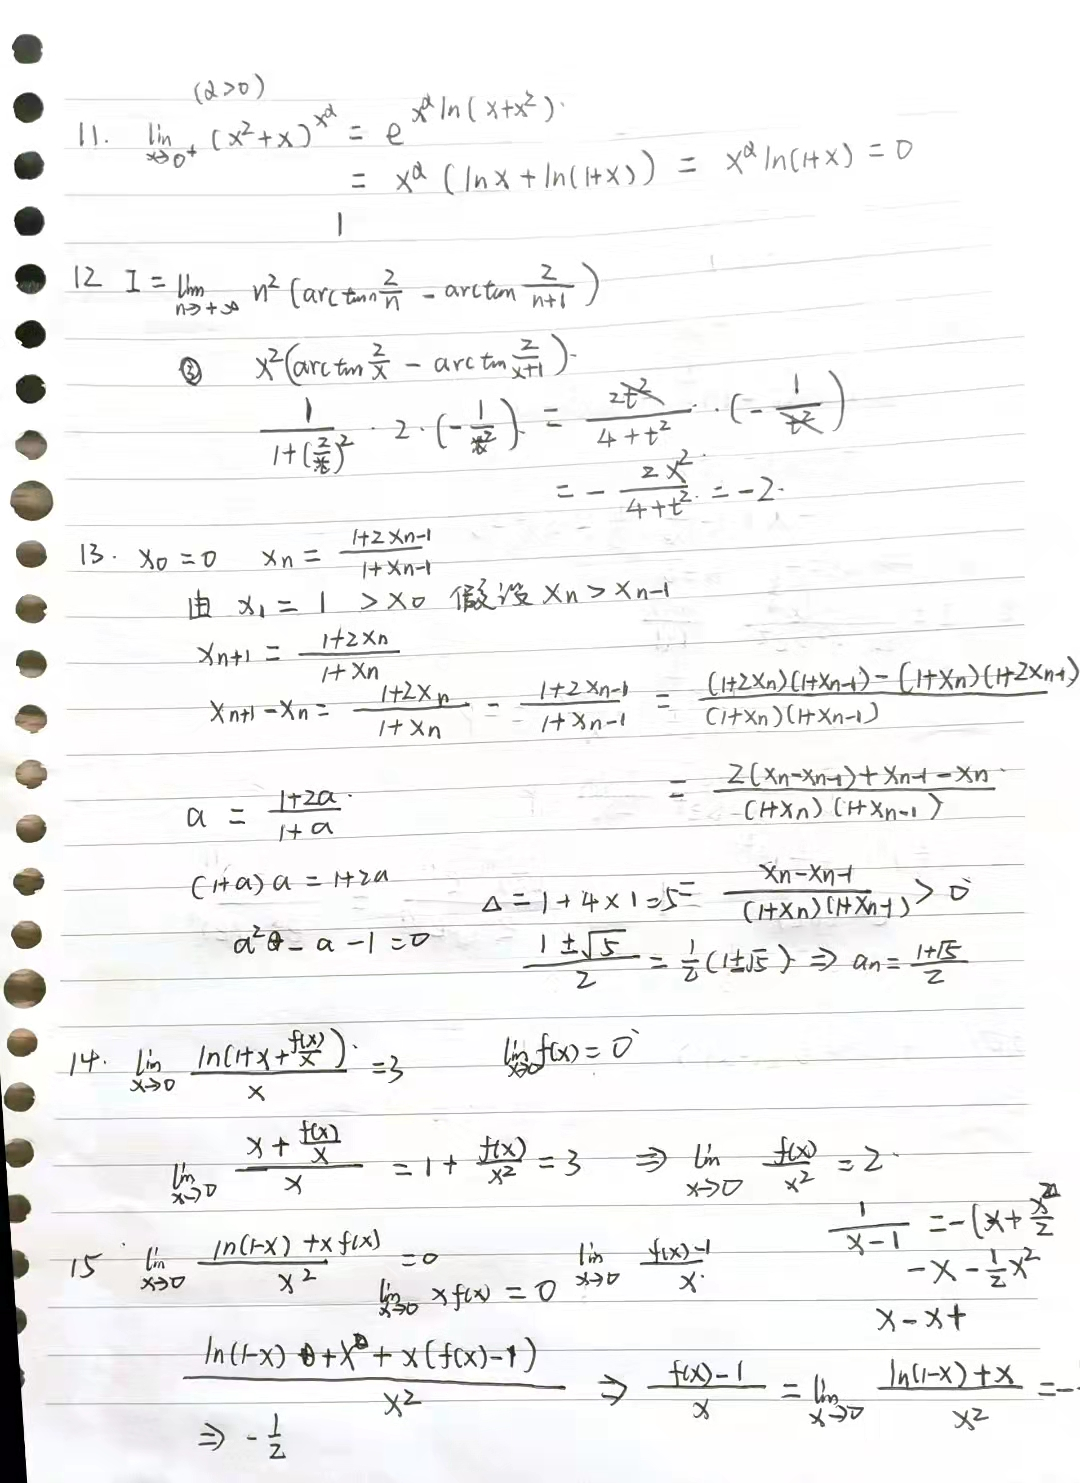 (α>0)
11. lim x→0⁺ (x²+x)^(x^α) = e^(x^α ln(x+x²)).
= x^α (lnx + ln(1+x)) = x^α ln(1+x) = 0
1
12 I = lim n→+∞ n² (arctan 2/n - arctan 2/(n+1))
② x²(arctan 2/x - arctan 2/(x+1)).
1/(1+(2/t)²) · 2 · (-1/t²) = 2t²/(4+t²) · (-1/t²)
= - 2x²/(4+t²) = -2.
13. x₀=0 xn = (1+2xn-1)/(1+xn-1)
由 x₁ = 1 > x₀ 假设 xn > xn-1
xn+1 = (1+2xn)/(1+xn)
xn+1 - xn = (1+2xn)/(1+xn) - (1+2xn-1)/(1+xn-1) = ((1+2xn)(1+xn-1) - (1+xn)(1+2xn-1))/((1+xn)(1+xn-1))
= (2(xn-xn-1)+xn-1-xn)/((1+xn)(1+xn-1))
a = (1+2a)/(1+a)
(1+a)a = 1+2a
= (xn-xn-1)/((1+xn)(1+xn-1)) > 0
Δ = 1+4×1=5
a² - a - 1 = 0
(1±√5)/2 = 1/2(1±√5) ⇒ an = (1+√5)/2
14. lim x→0 ln(1+x+f(x)/x)/x = 3 lim x→0 f(x) = 0
lim x→0 (x+f(x)/x)/x = 1 + f(x)/x² = 3 ⇒ lim x→0 f(x)/x² = 2.
1/(x-1) = -(x+x²/2
15 lim x→0 (ln(1-x)+xf(x))/x² = 0 lim x→0 (f(x)-1)/x.
-x - 1/2x²
lim x→0 xf(x) = 0
x-x+
(ln(1-x)+x+x(f(x)-1))/x² ⇒ (f(x)-1)/x = lim x→0 (ln(1-x)+x)/x² = -
⇒ -1/2